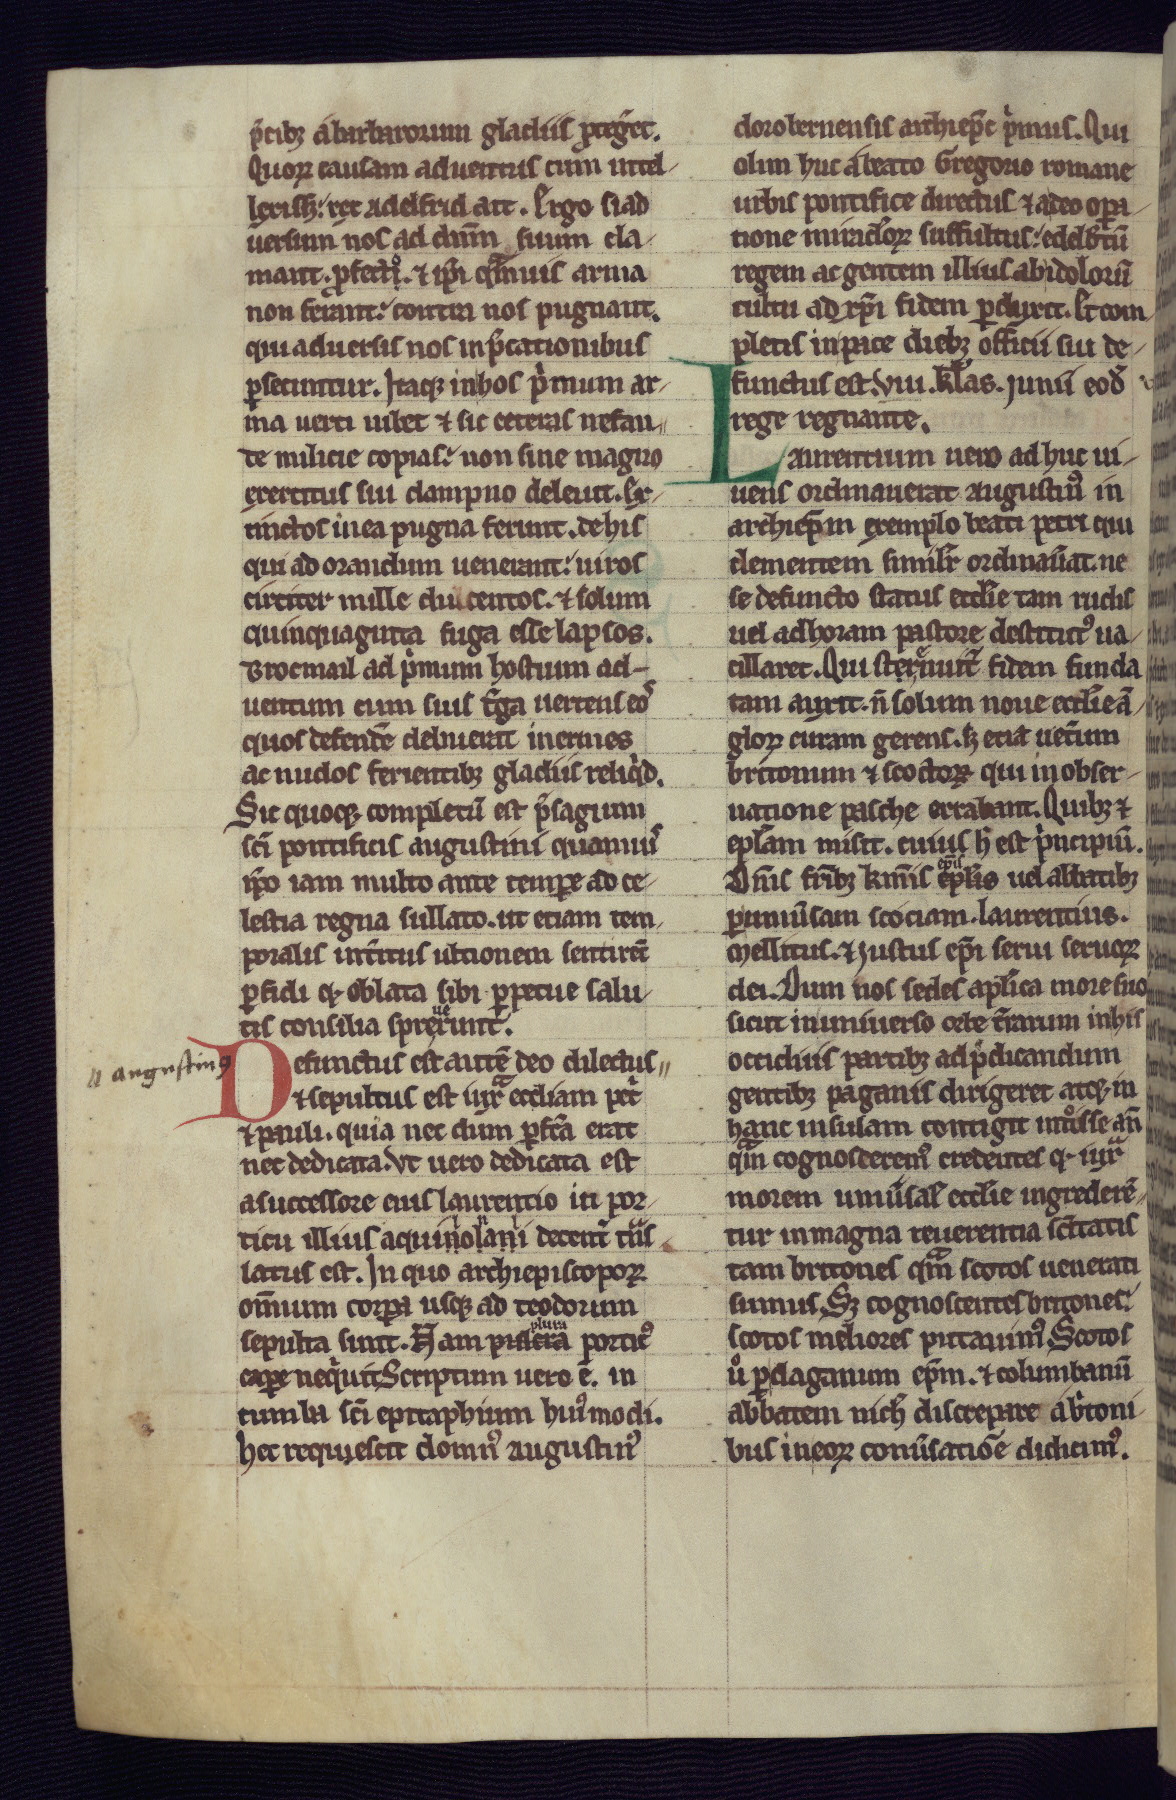 p̄cibꝫ a barbarorum gladiis ꝓteg̾et.
Quoꝝ causam aduentus cum intel-
lexissꝫ: rex adelfrid ait. Ergo si ad
uersum nos ad dn̄m suum cla-
mant. ꝓfecto. ⁊ ip̄i q̄muis arma
non ferant: contra nos pugnant.
qui aduersis nos inp̄cationibus
ꝑsecuntur. Itaqꝫ in hos p̓mum ar-
ma uerti iubet ⁊ sic ceteras nefan-
de milicie copias: non sine magno
exercitus sui dampno deleuit. Ex-
tinctos in ea pugna ferunt. de his
qui ad orandum uenerant: uiros
circiter mille ducentos. ⁊ solum
quinquaginta fuga esse lapsos.
Brocmail ad p̓mum hostium ad-
uentum cum suis t̓ga uertens eos
quos defendē̄ debuerat inermes
ac nudos ferientibꝫ gladiis reliq̓d.
Sic quoqꝫ completū est p̄sagium
sc̄i pontificis augustini quamuis
ip̄o iam multo ante tempore ad ce-
lestia regna sullato. ut etiam tem-
poralis int̓itus ultionem sentirēt
ꝑfidi qꝫ oblata sibi ꝑpetue salu-
tis consilia spreuerunt.
augustinꝰ
Defunctus est autē deo dilectus
⁊ sepultus est iux̄ ecc̄liam pet̓
⁊ pauli. quia nec dum ꝑfc̄a erat
nec dedicata. Vt uero dedicata est
a successore eius laurentio in por-
ticu illius aquilonali decent̓ t̄ns
latus est. In quo archiepiscopoꝝ
om̄ium corpora usqꝫ ad teodorum
sepulta sunt. Nam plura porticꝰ
caꝑe neq̓uit. Scriptum uero ē. in
tumba sc̄i epitaphium huiꝰmodi.
hec requiescit domnꝰ augustinꝰ
dorobernensis archiep̄c p̓mus. Qui
olim huc a beato Gregorio romane
urbis pontifice directus ⁊ a deo oꝑa-
tione miracl̓oꝝ suffultus: edelb̓tū
regem ac gentem illius ab idolorū
cultu ad xp̄i fidem ꝑduxit. Et com
pletis in pace diebꝫ officii sui de-
functus est. viii. kl̄as. Junii eod̄
rege regnante.
Laurentium uero ad huc ui-
uens ordinauerat augustinꝰ in
archiep̄m exemplo beati petri qui
clementem similit̓ ordinau̓at. ne
se defuncto status eccl̄ie tam rudis
uel ad horam pastore destitutꝰ ua-
cillaret. Qui strenuit̓ fidem funda
tam auxit. n̄ solum noue eccl̄ie ā-
gloꝝ curam gerens. sꝫ etiā uet̓um
britonum ⁊ scottoꝝ qui in obser-
uatione pasche errabant. Quibꝫ ⁊
epl̄am misit. cuius h̄ est p̓ncipiū.
Dn̄is fr̄ibꝫ kmīs ep̄is uel abbatibꝫ
ꝑ uniu̓sam scociam. laurentius.
Mellitus. ⁊ Justus ep̄i serui seruoꝝ
dei. Dum nos sedes apl̄ica more suo
sicut in uniuerso orbe t̓rarum in his
occiduis partibꝫ ad p̄dicandum
gentibꝫ paganis dirigeret atqꝫ in
hanc insulam contigit int̊isse an̄
q̄m cognosceremꝰ credentes qꝫ iux̄
morem uniu̓sal̓ eccl̄ie ingrederē-
tur in magna reuerentia sc̄itatis
tam britones q̄m scotos uenerati
sumus. Sꝫ cognoscentes britones:
scotos meliores putauimꝰ. Scotos
ů ꝑ daganum ep̄m. ⁊ columbanū
abbatem nich̄ discrepare a b̓toni-
bus in eoꝝ conu̓satiōe didicimꝰ.